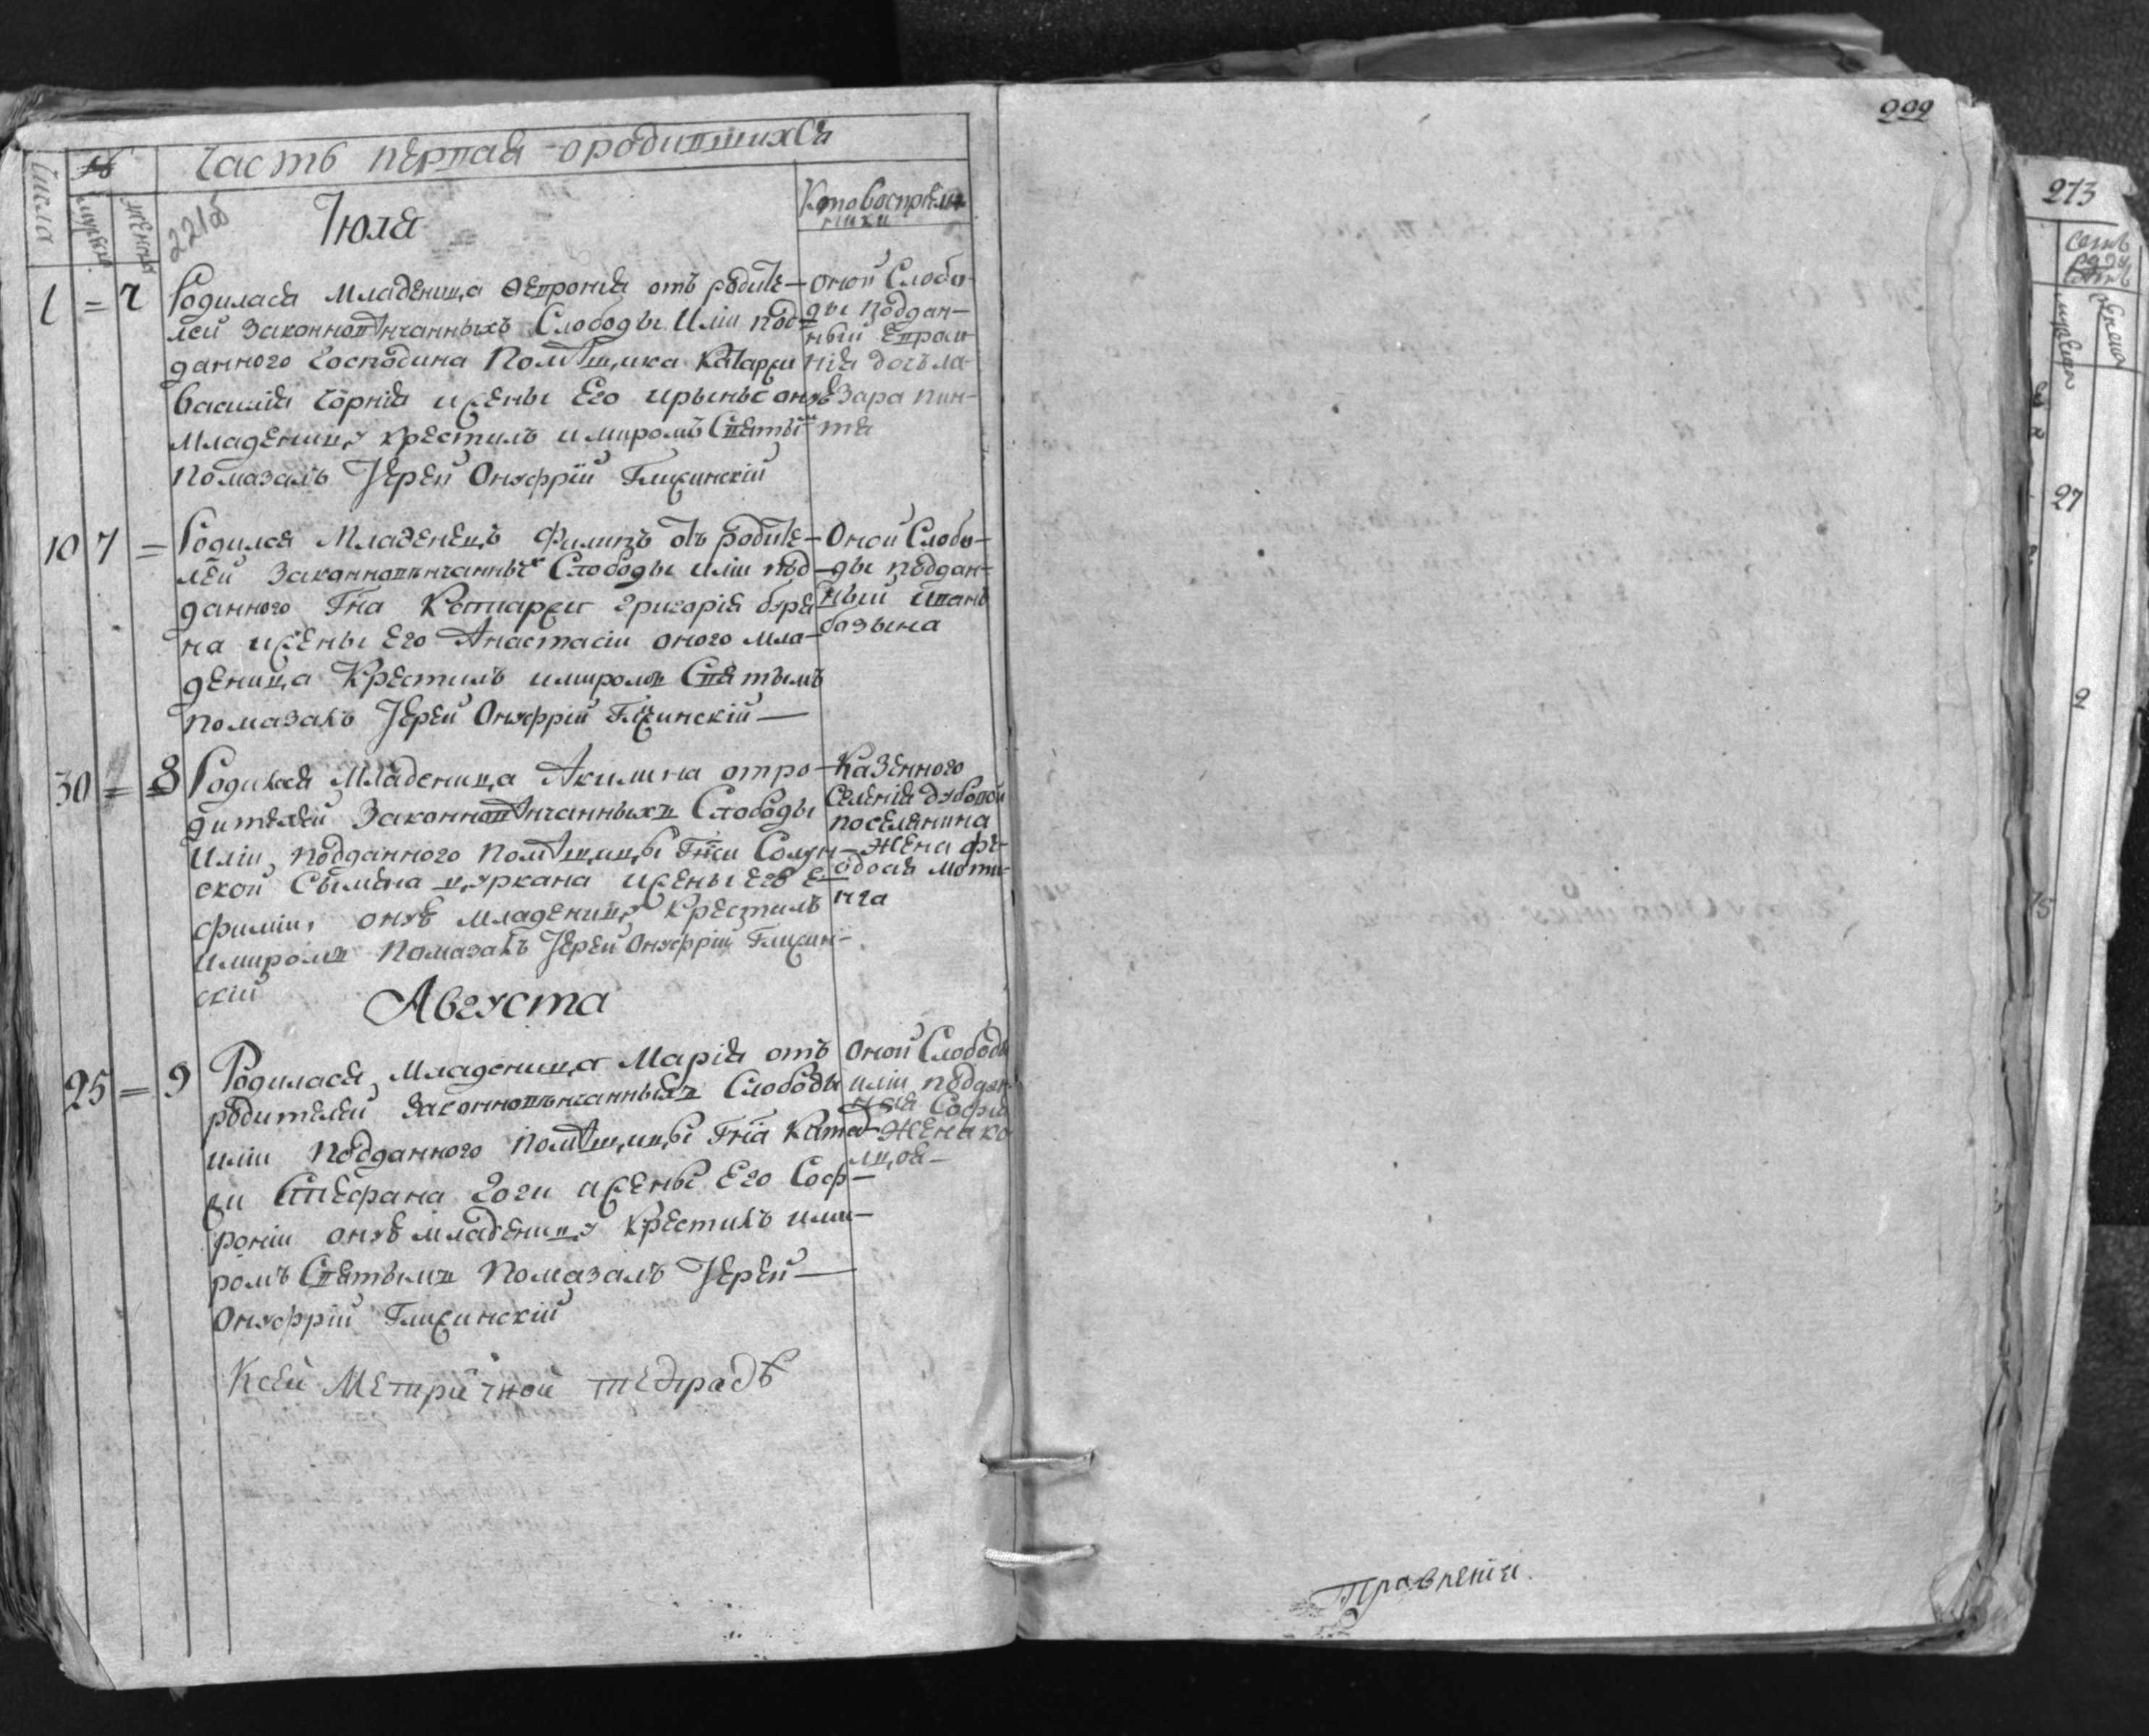 Часть первая о родившихся
Числа
мужеск
женск
221об
Июля
Кто восприем
ники
1 = 7 Родилася младеница Февронія отъ родите-
лей законновѣнчанныхъ Слободы Иліи под
данного Господина Помѣщика Катаржи
Василія Чорнія и жены Его Ирыны онꙋю
младеницꙋ крестилъ и миромъ Святым
помазалъ Іерей Онуфрій Глижинскій
оной Слобо-
ды поддан-
ный Евраи-
нія дочь ла-
зара пин-
тя
10 7 = Родился Младенецъ Филипъ отъ родите-
лей законновѣнчанных Слободы Иліи под
данного Гна Катаржи Григорія буря
на и жены Его Анастасіи оного мла-
деница Крестилъ и миромъ Святымъ
помазалъ Іерей Онуфрій Глижинскій
Оной Слобо-
ды поддан-
ный Иванъ
базына
30 = 8 Родилася Младеница Акилина от ро-
дителей Законновѣнчанныхъ Слободы
Иліи подданного помѣщицы Гжи Солун-
ской Сымена цуркана и жены его Е-
фиміи, онꙋю младеницꙋ Крестилъ
и миромъ помазалъ Іерей Онуфрій Глижин-
скій
Казенного
Селенія дубовой
поселянина
жена Фе-
одосія моти-
нга
Августа
25 = 9 Родилася Младеница Марія отъ
родителей законновѣнчанныхъ Слободы
Иліи подданного помѣщицы Гна Катар-
жи Стефана Гоги и жены Его Соф-
роніи онꙋю младеницꙋ Крестилъ и ми-
ромъ Святымъ помазалъ Іерей
Онуфрій Глижинскій
оной Слободы
Иліи поддан
ная Софія
жена ко
Ксей Метричной тетрадѣ
222
Правленія
273
27
2
15